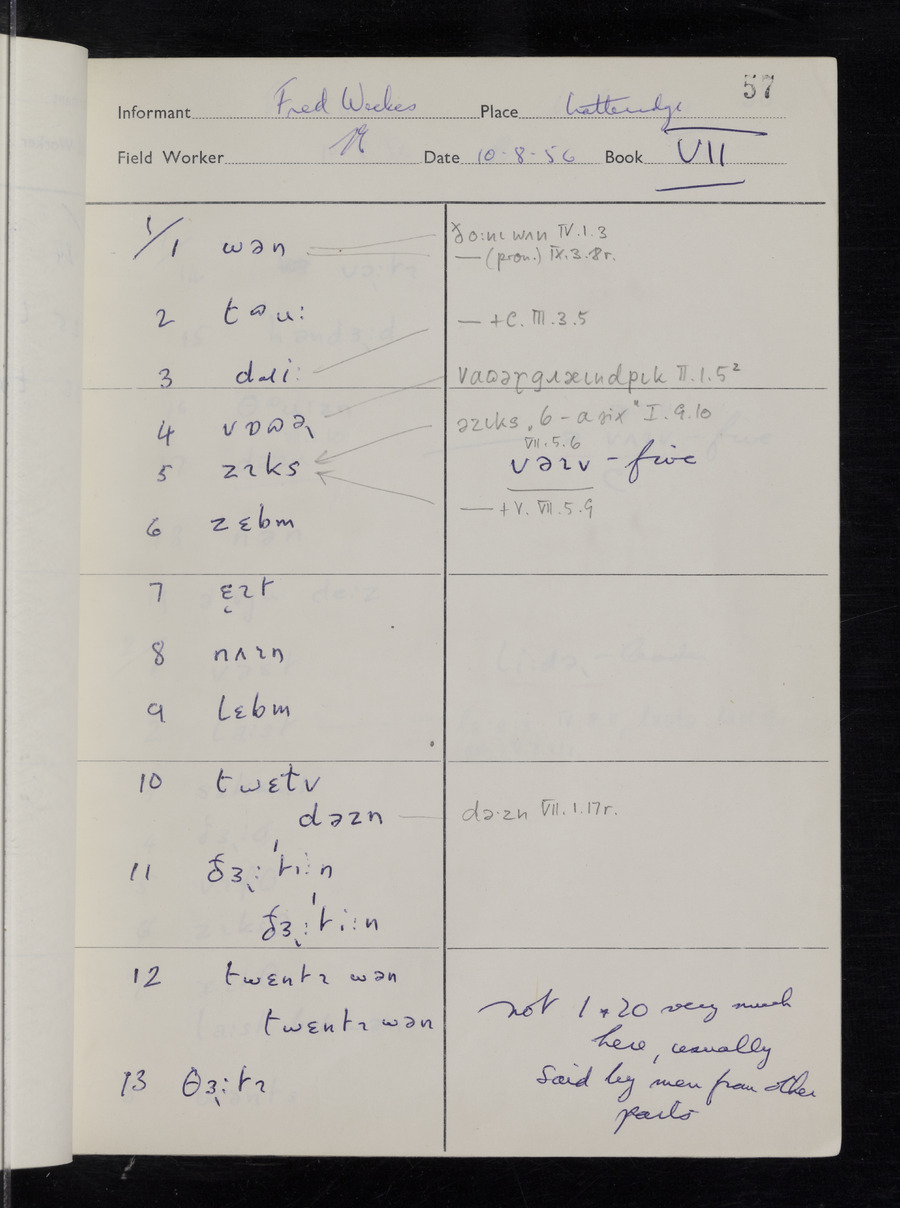 57
Informant Fred Weekes Place Latteridge
Field Worker Date 10-8-56 Book VII
1/1 wən
ðoːnɩ wʌn IV.1.3
— (pron.) IX.3.8r.
2 tɷuː
— +C. III.3.5
3 dɹiː
II.1.5²
4 vɒɷə˞
əzɩks "6 – a six" I.9.10
VII.5.6
5 zɪks
vəɪv – five
— +V. VII.5.9
6 zɛbm
7 ɛ̞ɪt
8 nʌɪn
9 lɛbm
10 twɛtv
dəzn
də·zn VII.1.17r.
11 ðɜ˞ːˈtiːn
ðɜ˞ːˈtiːn
12 twɛntɪ wən
twɛntɪ wən
not 1 + 20 very much
here, usually
said by men from other
parts
13 θɜ˞ːtɪ